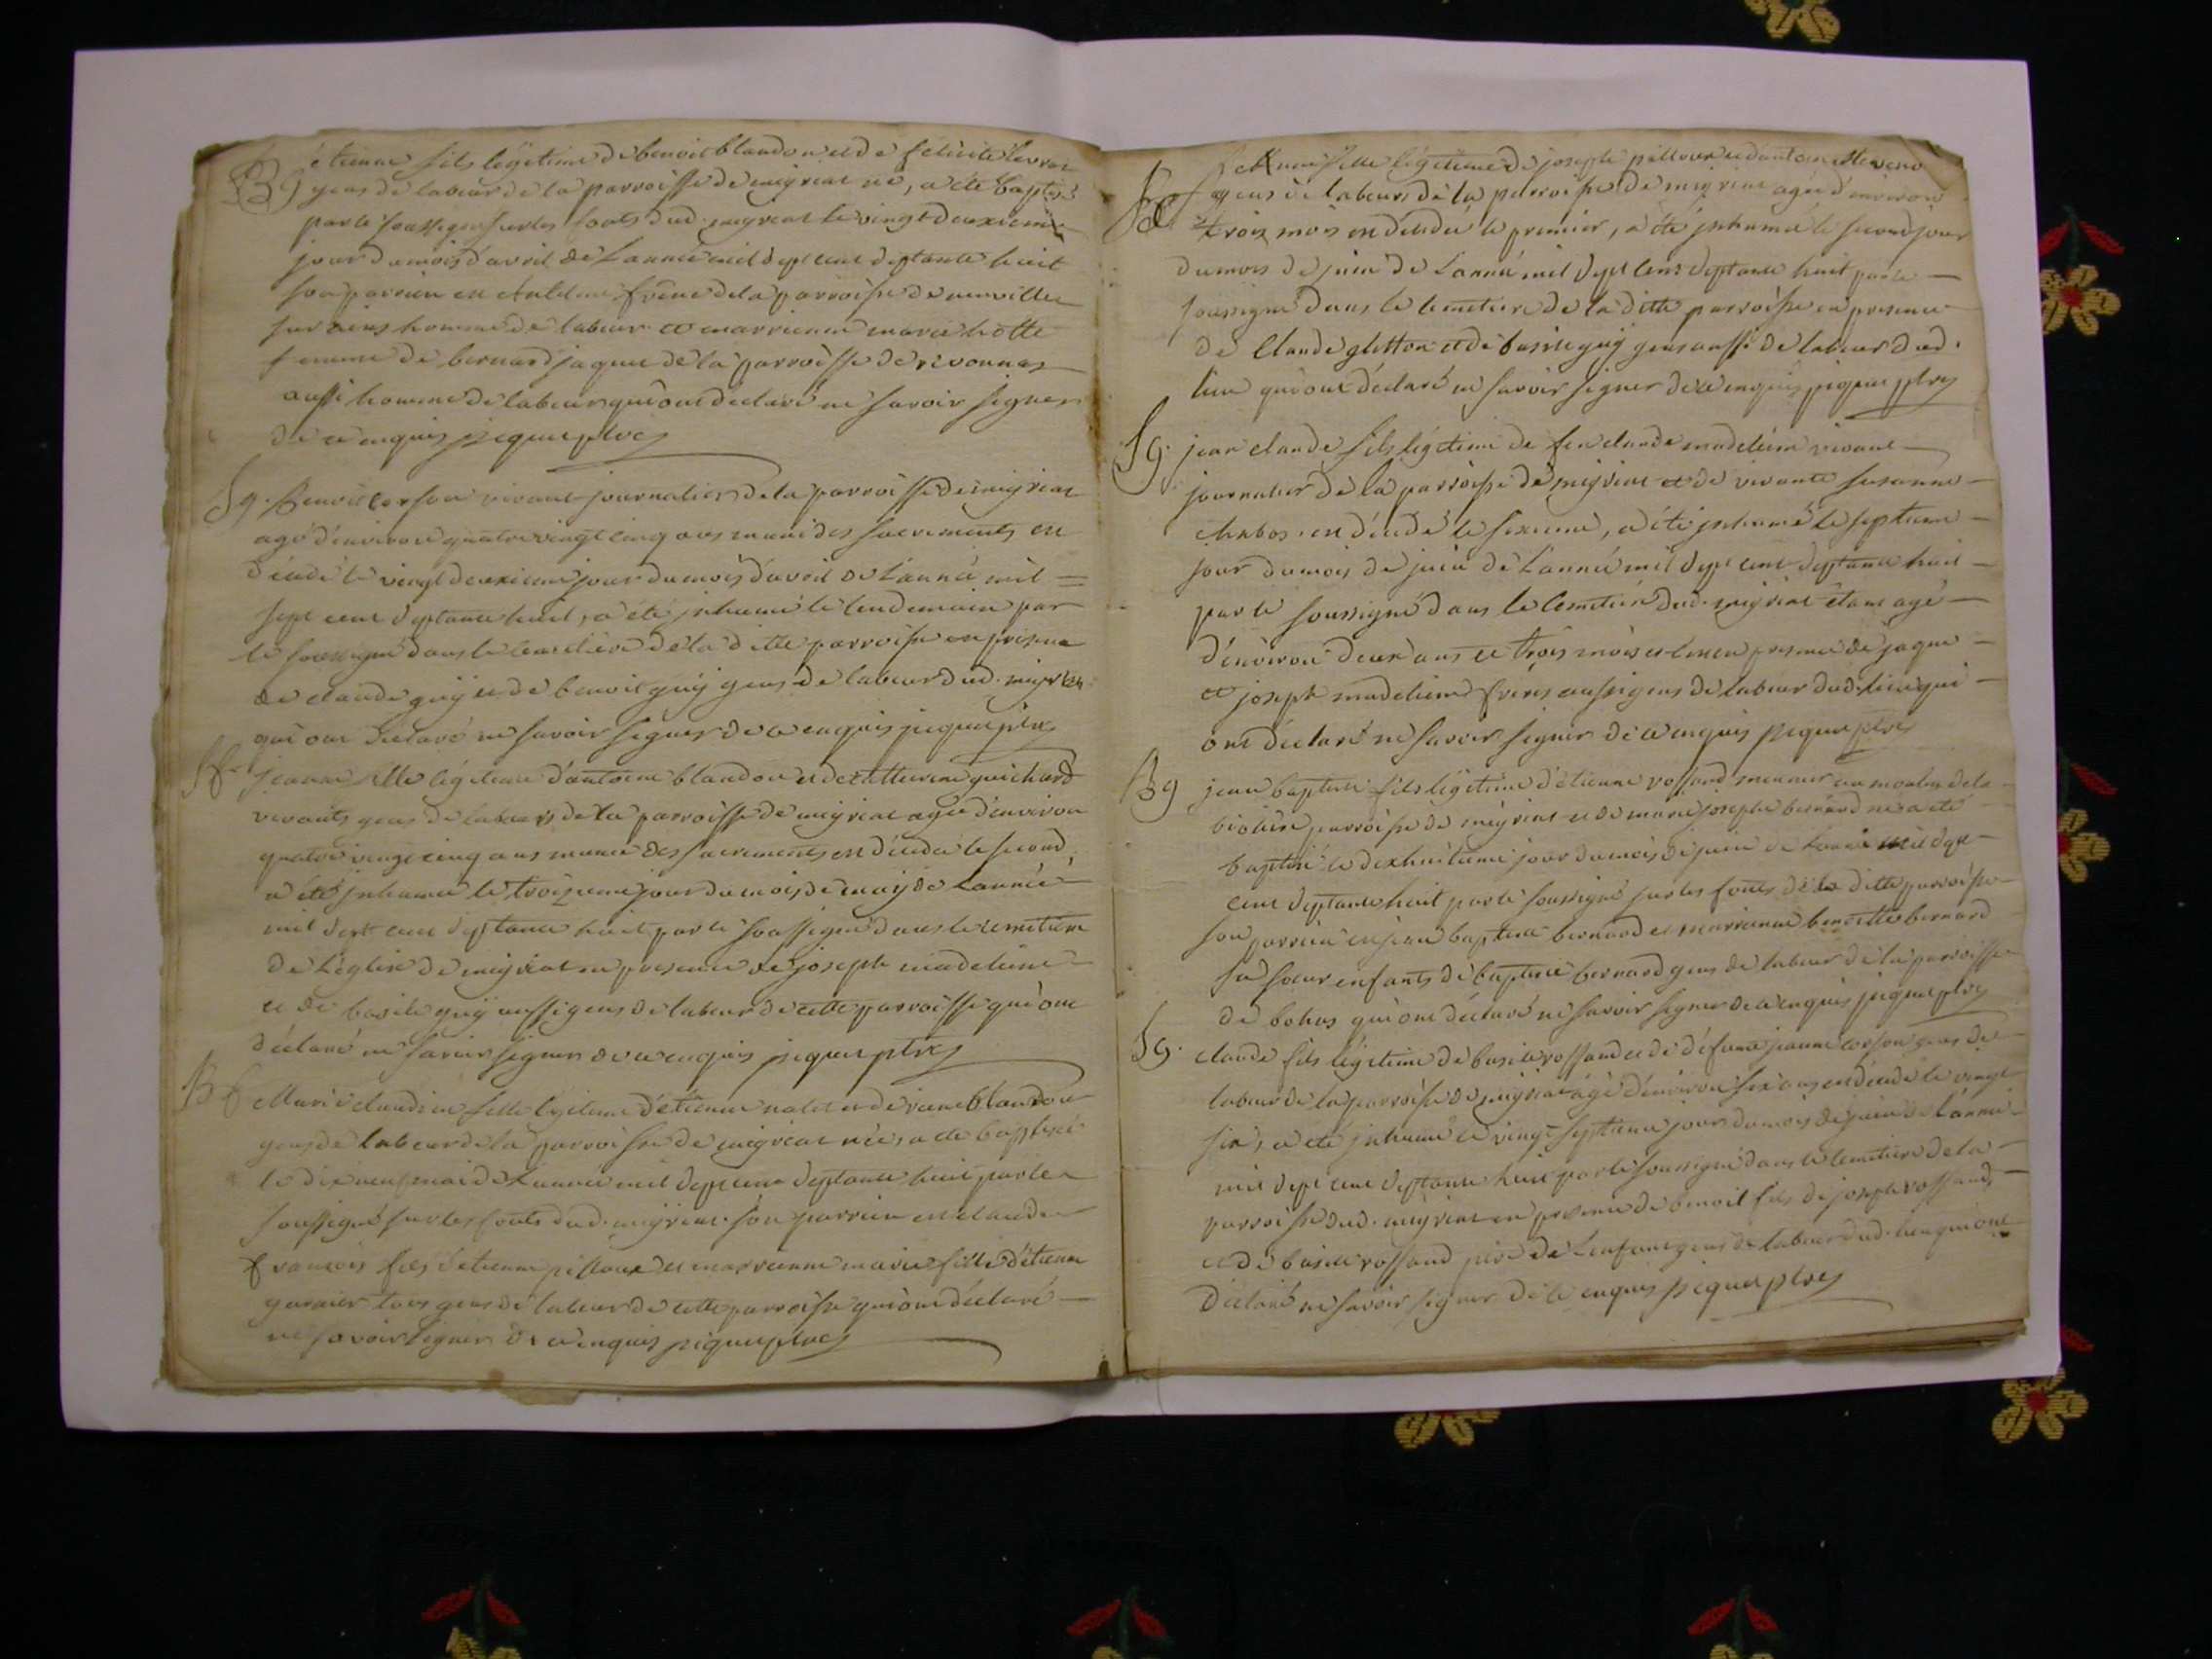 étienne fils légitime de benoit blandon et de félicité levrat
B g gens de labeur de la parroisse de meyriat né, a été baptisé
par le soussigné sur les fonts dud. meyriat le vingt deuxieme
jour du mois d'avril de L'année mil sept cent septante huit
son parrien est antelme frene de la parroisse de neuville
sur ains homme de labeur et marrienne marie
femme de bernard jaque de la parroisse de revonnas
aussi homme de labeur qui ont déclaré ne savoir signer
de ce enquis pique ptre
S g. Benoit corson vivant journalier de la parroisse de meyriat
agé d'environ quatre vingt cinq ans muni des sacrements est
décédé le vingt deuxieme jour du mois d'avril de L'année mil =
sept cent septante huit, a été jnhumé le lendemain par
le soussigné dans le cemetiere de la ditte parroisse en presence
de claude guÿ et de benoit guÿ gens de labeur dud. meyriat
qui ont déclaré ne savoir signer de ce enquis pique ptre
S f. jeanne fille légitime d'antoine blandon et de catherine guichard
vivants gens de labeur de la parroisse de meyriat agée d'environ
quatre vingt cinq ans munie des sacrements est décédée le second,
a été jnhumée le troizieme jour du mois de maÿ de L'année
mil sept cent septante huit par le soussigné dans le cemetiere
de L'église de meyriat en presence de joseph madeleine
et de basile guÿ aussi gens de labeur de cette parroisse qui ont
déclaré ne savoir signer de ce enquis pique ptre
B f Marie claudine fille légitime d'étienne et de blandon
gens de labeur de la parroisse de meyriat née, a été baptisée
le dixneuf mai de L'année mil sept cent septante huit par le
soussigné sur les fonts dud. meyriat. son parrien est claude
françois fils d'étienne pilloux et marrienne marie fille d'étienne
garnier tous gens de labeur de cette parroisse qui ont déclaré
ne savoir signer de ce enquis pique ptre
fille légitime de joseph pilloux et d'antoinette
S f gens de labeurs de la parroisse de meyriat agée d'environ
trois mois est décédée le premier, a été jnhumée le second jour
du mois de juin de L'année mil sept cent septante huit par le
soussigné dans le cemetiere de la ditte parroisse en presence
de Claude gletton et de basile guÿ gens aussi de labeur dud.
lieu qui ont déclaré ne savoir signer de ce enquis pique ptre
S g. jean claude fils légitime de feu claude madeleine vivant
journalier de la parroisse de meyriat et de vivante susanne
chabos. est décédé le sixieme, a été jnhumé le septieme
jour du mois de juin de L'année mil sept cent septante huit
par le soussigné dans le Cemetiere dud. meyriat étant agé
d'environ deux ans et trois mois en presence de jaque
et joseph madeleine freres aussi gens de labeur dud. lieu qui
ont déclaré ne savoir signer de ce enquis pique ptre
B g jean baptiste fils légitime d'étienne rossand meunier au moulin de la
parroisse de meyriat et de marie josephe bernard né a été
baptisé le dixhuitieme jour du mois de juin de L'année mil sept
cent septante huit par le soussigné sur les fonts de la ditte parroisse
son parrien est jean baptiste bernard et marrienne benoitte bernard
sa soeur enfants de baptiste bernard gens de labeur de la parroisse
de bohas qui ont déclaré ne savoir signer de ce enquis pique ptre
S g. claude fils légitime de basile rossand et de défunte jeanne corson gens de
labeur de la parroisse de meyriat agé d'environ six ans est décédé le vingt
six, a été jnhumé le vingt septieme jour du mois de juin de L'année
mil sept cent septante huit par le soussigné dans le cemetiere de la
parroisse dud. meyriat en presence de benoit fils de joseph rossand
et de basile rossand pere de L'enfant gens de labeur dud. lieu qui ont
déclaré ne savoir signer de ce enquis pique ptre